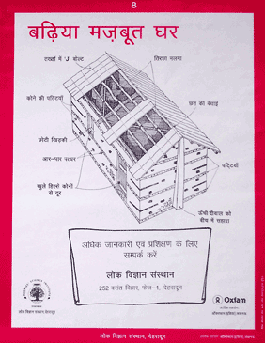 B
बढ़िया मज़बूत घर
तख्तों में 'J' बोल्ट
तिरछा
कोने की पट्टियाँ
छत का
छोटी खिड़की
आर-पार पत्थर
खुले हिस्से कोनों
से दूर
ऊँची दीवाल को
बीच में सहारा
अधिक जानकारी एवं प्रशिक्षण के लिए
सम्पर्क करें
लोक विज्ञान संस्थान
252 वसंत विहार, फेज-1, देहरादून
Oxfam
लोक विज्ञान संस्थान, देहरादून